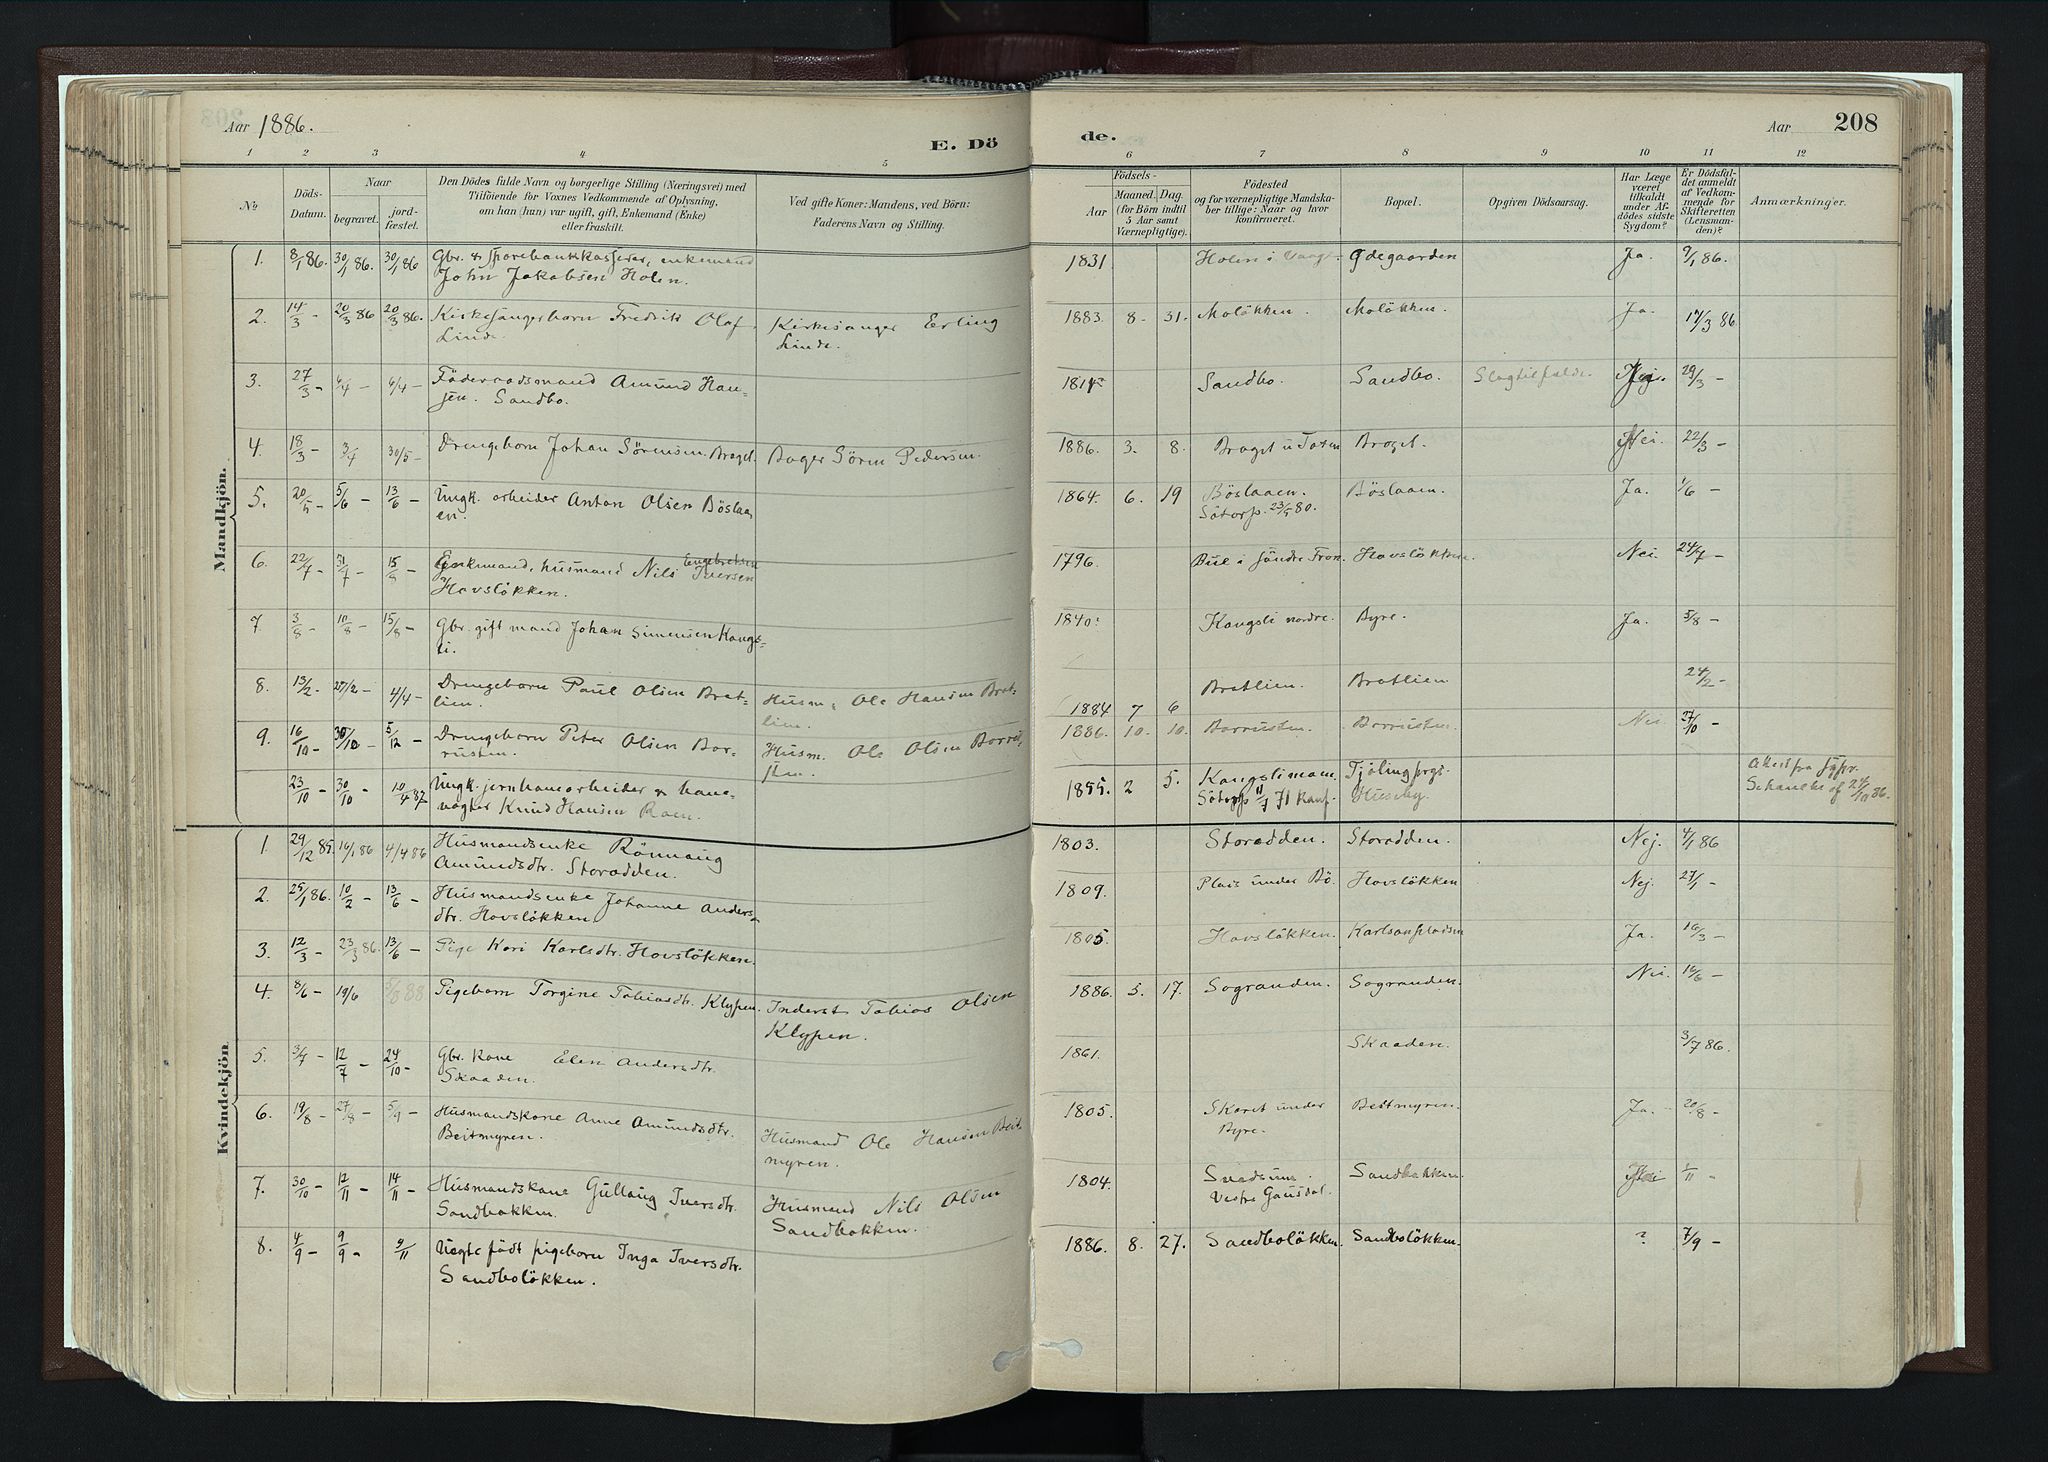 Aar 1886.
E. Dö
de.
Aar
208
1 2 3 4 5
6 7 8 9 10 11 12
No
Döds-
Datum.
Naar
begravet.
jord-
fæstet.
Den Dödes fulde Navn og borgerlige Stilling (Næringsvei) med
Tilföiende for Voxnes Vedkommende af Oplysning,
om han (hun) var ugift, gift, Enkemand (Enke)
eller fraskilt.
Ved gifte Koner: Mandens, ved Börn:
Faderens Navn og Stilling.
Födsels-
Aar
Maaned. Dag.
(for Börn indtil
5 Aar samt
Værnepligtige).
Födested
og for værnepligtige Mandska-
ber tillige: Naar og hvor
konfirmeret.
Bopæl.
Opgiven Dödsaarsag.
Har Læge
været
tilkaldt
under Af-
dödes sidste
Sygdom?
Er Dödsfal-
det anmeldt
af Vedkom-
mende for
Skifteretten
(Lensman-
den)?
Anmærkninger.
Mandkjön.
1. 8/1 86. 30/1 86. 30/1 86 Gbr. & Sparebankkasserer, enkemand 1831 Holen i Vaage Ødegaarden Ja. 9/1 86.
John Jakobsen Holen.
2. 14/3 - 20/3 86 20/3 86. Kirkesangerbarn Fredrik Olaf Kirkesanger Erling 1883. 8. 31. Moløkken. Moløkken. Ja. 17/3 86
Linde. Linde.
3. 27/3 - 6/4 - 6/4 - Föderaadsmand Amund Han- Sandbo. Sandbo. Slagtilfælde. Nej. 29/3 -
sen. Sandbo.
4. 18/3 - 3/4 30/5 - Drengebarn Johan Sörensen Braget. Bager Sören Pedersen. 1886. 3. 8. Braget Braget. Nei. 22/3 -
5. 20/5 - 5/6 - 13/6 - Ungk. arbeider Anton Olsen Böslaa- 1864. 6. 19 Böslaaen. Böslaaen. Ja. 1/6 -
en. Sötorp. 80.
6. 22/7 - 31/7 - - Enkemand, husmand Nils Engebretsen Iversen 1796. Bue i Söndre Fron Havslökken. Nei 24/7 -
Havslökken.
7. 3/8 - 10/8 - 15/8 - Gbr. gift mand Johan Simensen Kongs- 1840. Kongsli nordre. Byre. Ja. 5/8 -
li.
8. 13/2 - 27/2 - 4/4 - Drengebarn Paul Olsen Brat- Husm. Ole Hansen Brat- 1884 7 6 Bratlien. Bratlien 24/2 -
lien. lien.
9. 16/10 - 30/10 - 5/12 - Drengebarn Peter Olsen Bor- Husm. Ole Olsen Borru- 1886. 10. 10. Borrusten. Borrusten. Nei 27/10 -
rusten. sten.
23/10 - 30/10 - 10/4 87 Ungk. jernbanearbeider & bane- 1855. 2 5. Kongslimoen. Tjölingpgs.
vogter Knud Hansen Roen. Sötorp 71 Huseby. Attest fra Sgpr.
86.
Kvindekjön
1. 29/12 85. 16/1 86 4/4 86 Husmandsenke Rönnaug 1803. Storødden. Storødden. Nej. 4/1 86
Amundsdtr. Storødden.
2. 25/1 86. 10/2 - 13/6 - Husmandsenke Johanne Anders- 1809. Plads under Bö. Havslökken Nej. 27/1 -
dtr. Hovslökken.
3. 12/3 - 23/3 86. 13/6 - Pige Kari Karlsdtr. Hovslökken. 1805. Hovslökken. Karlsonpladsen Ja. 16/3 -
4. 8/6 - 19/6 88 Pigebarn Torgine Tobiasdtr. Klypen. Inderst Tobias Olsen 1886. 5. 17. Sogranden. Sogranden. Nei. 16/6 -
Klypen.
5. 3/7 - 12/7 - 24/10 - Gbr. kone Elen Andersdtr. 1861. Skaaden. 3/7 86.
Skaaden.
6. 19/8 - 27/8 - 5/9 - Husmandskone Anne Amundsdtr. Husmand Ole Hansen Beit- 1805. Skaret under Beitmyren. Ja. 20/8 -
Beitmyren. myren. Byre.
7. 30/10 - 12/11 - 14/11 - Husmandskone Gullaug Iversdtr. Husmand Nils Olsen 1804. Svadsum. Sandbakken. Nei -
Sandbakken. Sandbakken. Vestre Gausdal.
8. 4/9 - 9/9 - 9/11 Uægte född pigebarn Inga Iversdtr. 1886. 8. 27. Sandbolökken. Sandbolökken. ? 7/9 -
Sandbolökken.